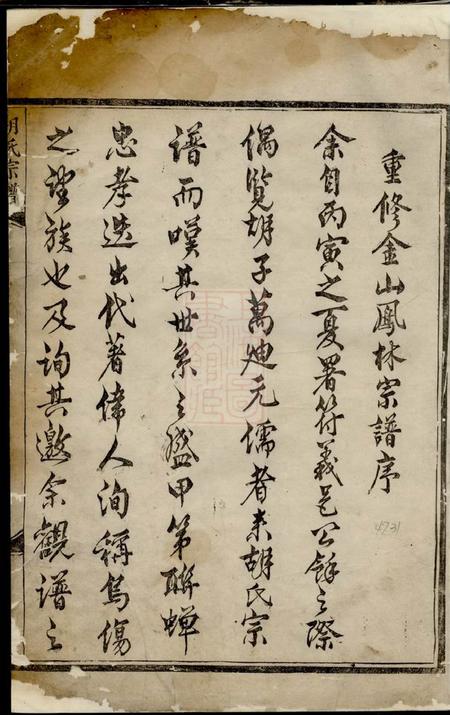 重修金山鳳林宗譜序
余自丙寅之夏署符義邑公餘之際
偶覽胡子萬迪元儒者來胡氏宗
譜而嘆其世系之盛甲第聯蟬
忠孝迭出代著偉人洵稱烏傷
之望族也及詢其邀余觀譜之
胡氏宗譜
4731